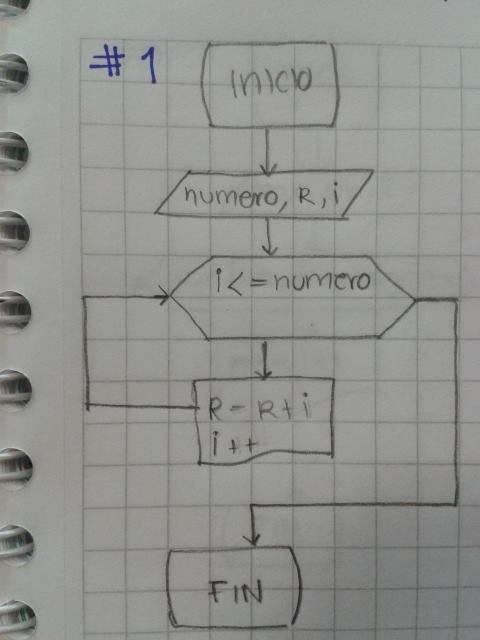 #1
inicio
numero, R, i
i<=numero
R = R+i
i++
FIN